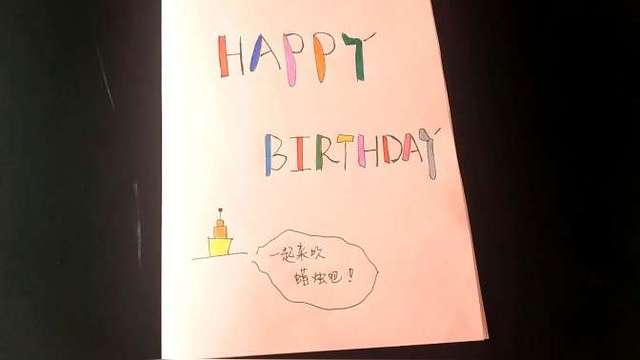 HAPPY
BIRTHDAY
一起来吹
蜡烛吧!